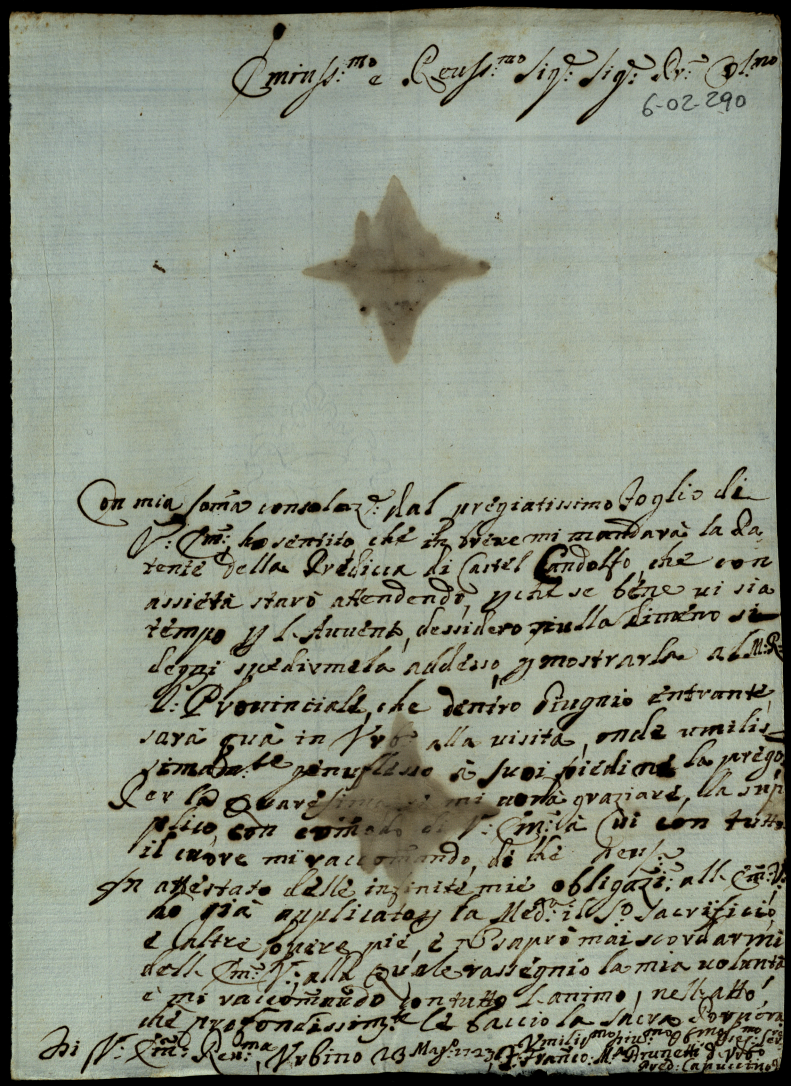 Eminss:mo e Reuss:mo Sig:r Sig:r Pr̃n Col:mo
6-02-290
Con mia som̃a consolaz:e dal pregiatissimo foglio di
V: Em̃: ho sentito che in breve mi mandarà la Pa,
tente della Predicca di Castel Gandolfo, che con
assietà starò attendendo, p che se bene ui sia
tempo p l'Auuento, dessidero nulla dimeno si
degni spedirmela addesso, p mostrarla al M: R:
P: Prouinciale, che dentro Giugnio entrante,
sarà quà in Urb:o alla uisita, onde umilis,
simam:te genuflesso a suoi piedi ne la prego.
Per la Quaresima se mi uorà graziare, la sup
plico con com̃odo di V: Em̃:za Cui con tutto
il cuore mi raccomando, di che
In attestato delle infinite mie obligaz:i all' Em̃: V:
hò già applicato p la Med:ma il S:o Sacrificio,
e altre opere pie, e nõ saprò mai scordarmi
dell' Em̃: V: alla quale rassegnio la mia uolontà
e mi raccom̃ando con tutto l'animo, nell'atto
che profondissim:te le faccio la sacra
Di V: Em̃: Reu:ma Urbino 23 Mag:o 1727
Franco: M:a Brunetti d'Urb:o
Pred: Capuccino